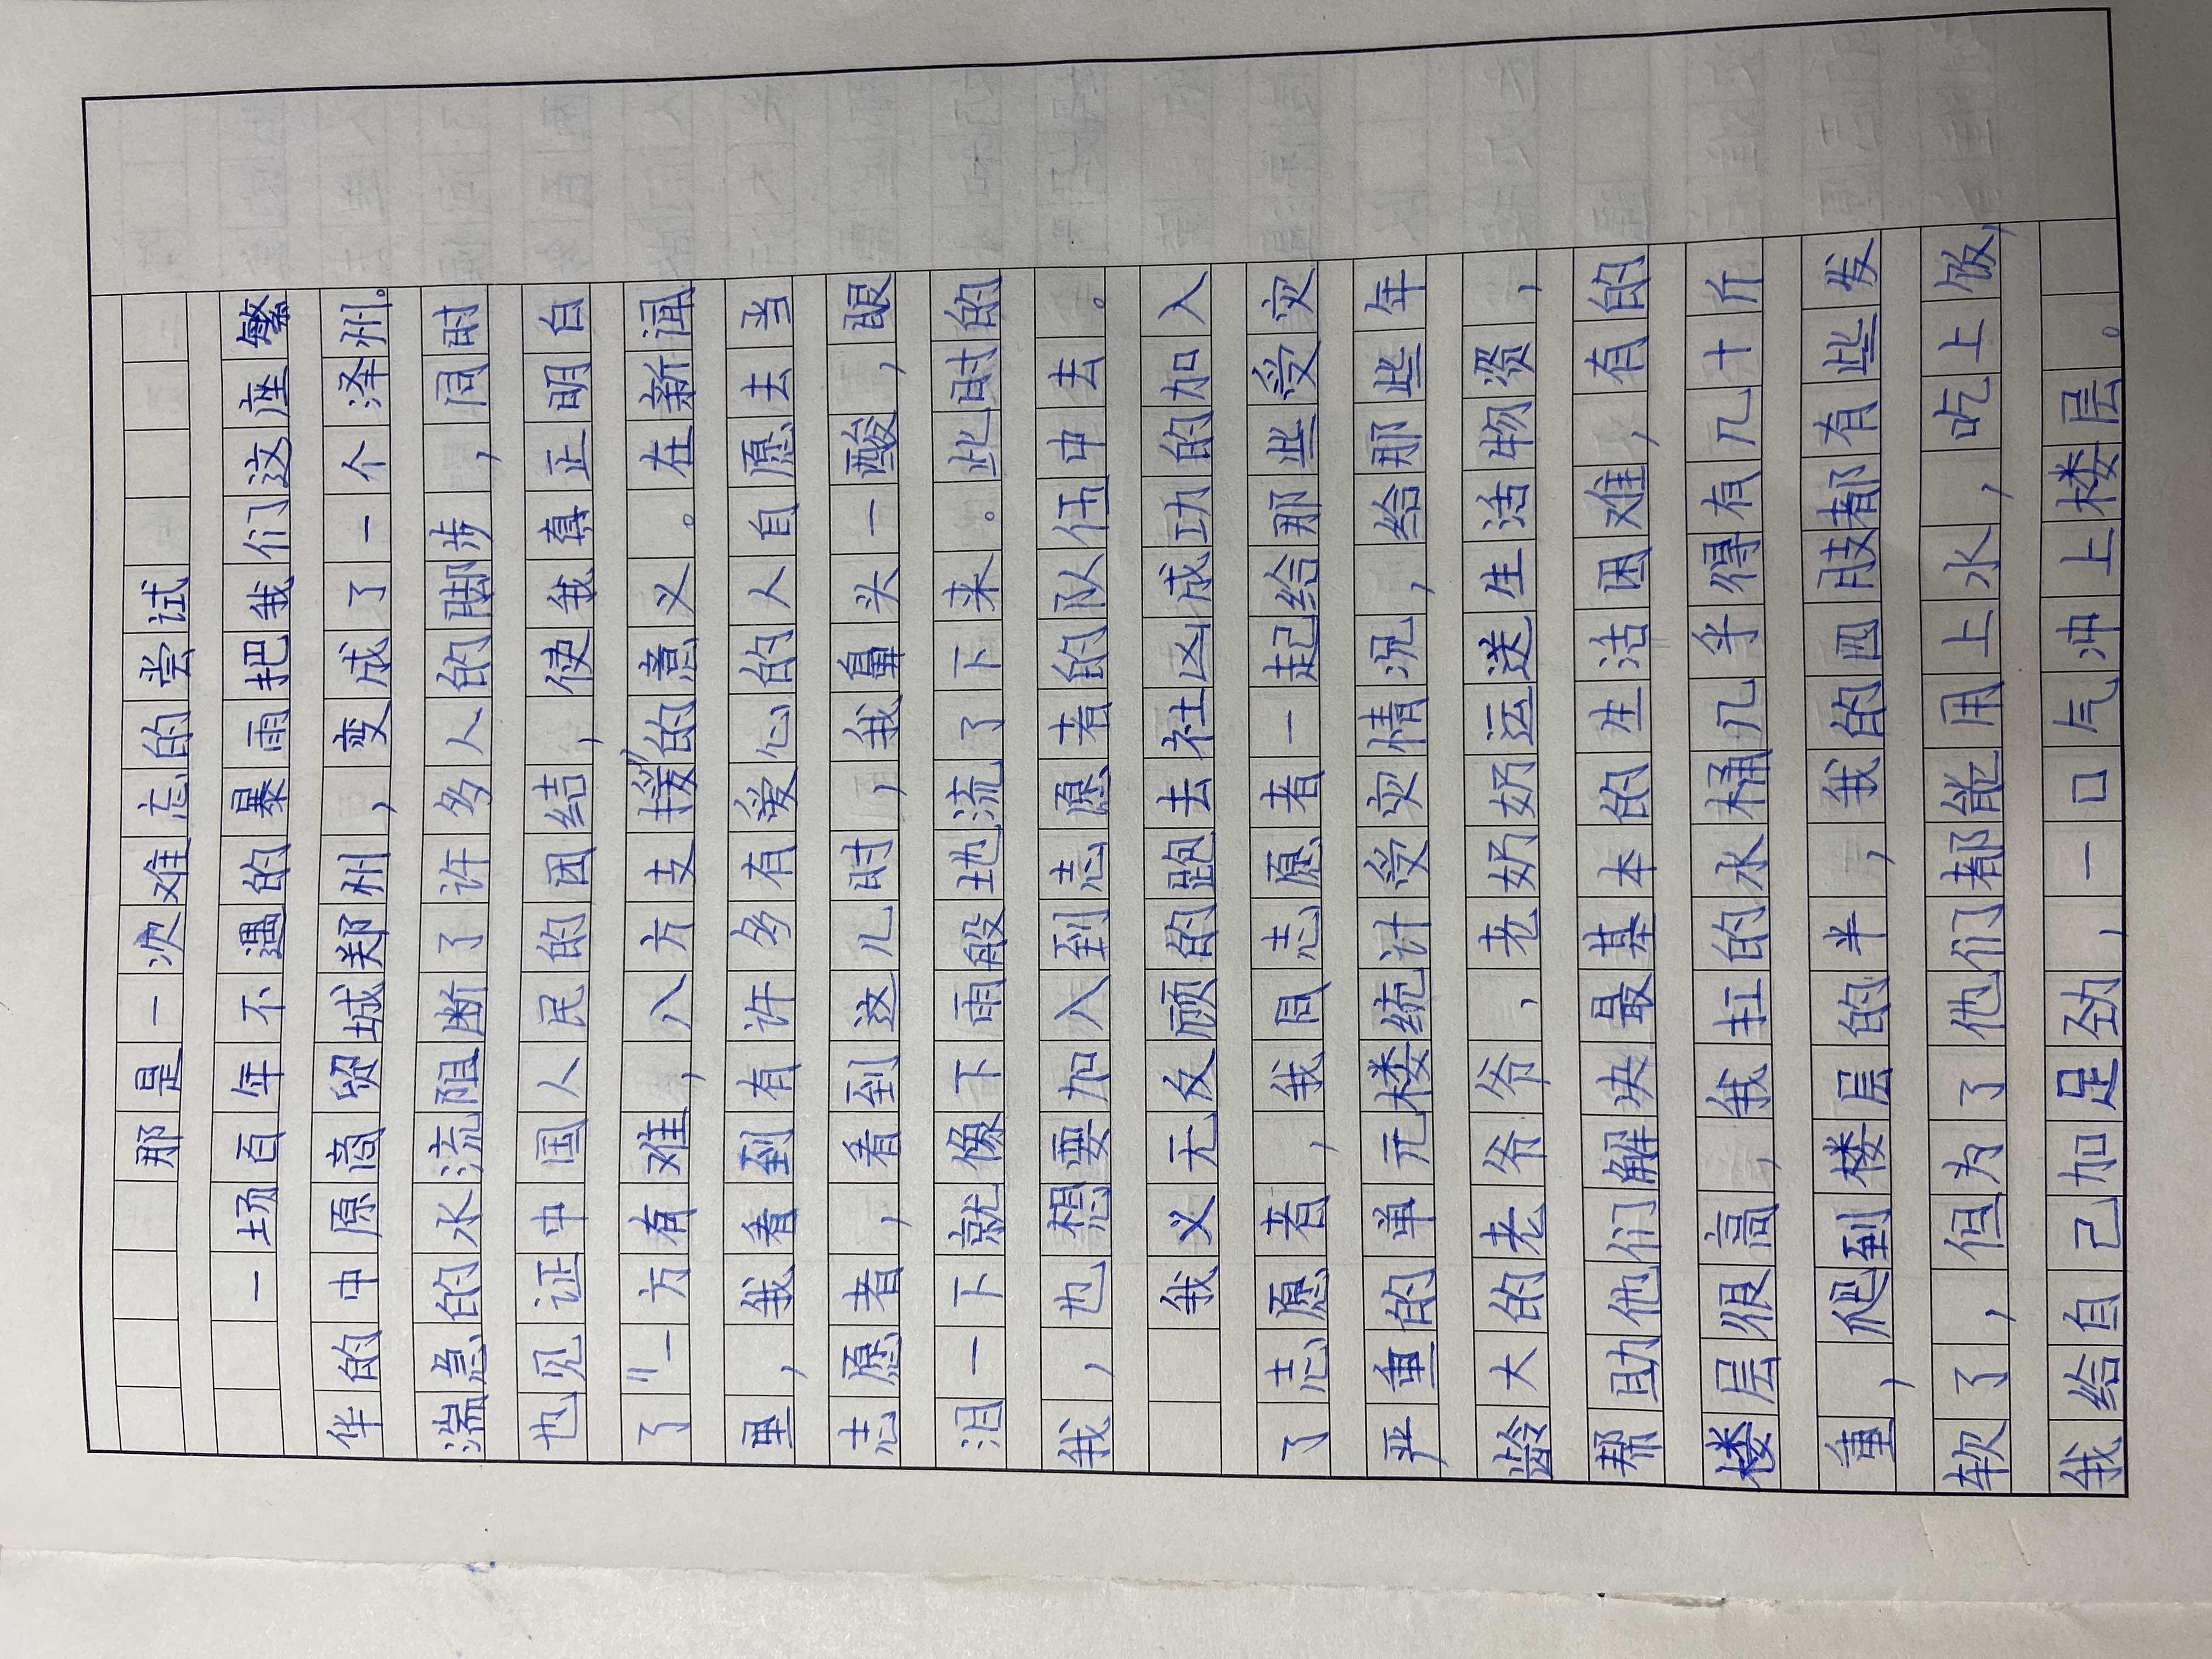 那是一次难忘的尝试
一场百年不遇的暴雨把我们这座繁
华的中原商贸城郑州，变成了一个泽州。
湍急的水流阻断了许多人的脚步，同时
也见证中国人民的团结，使我真正明白
了“一方有难，八方支援”的意义。在新闻
里，我看到有许多有爱心的人自愿去当
志愿者，看到这儿时，我鼻头一酸，眼
泪一下就像下雨般地流了下来。此时的
我，也想要加入到志愿者的队伍中去。
我义无反顾的跑去社区成功的加入
了志愿者，我同志愿者一起给那些受灾
严重的单元楼统计受灾情况，给那些年
龄大的老爷爷，老奶奶运送生活物资，
帮助他们解决最基本的生活困难，有的
楼层很高，我扛的水桶几乎得有几十斤
重，爬到楼层的半，我的四肢都有些发
软了，但为了他们都能用上水，吃上饭，
我给自己加足劲，一口气冲上楼层。